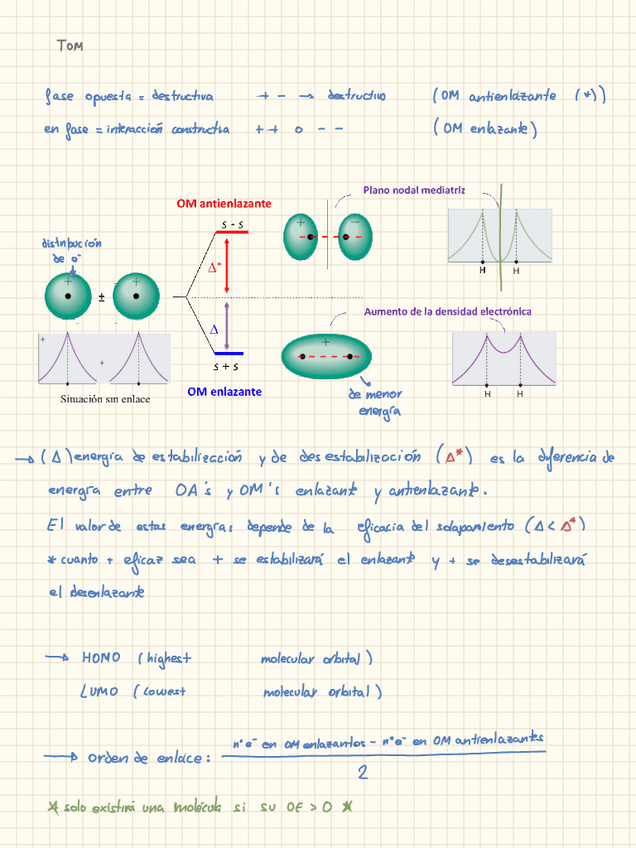 TOM
fase opuesta = destructiva + - → destructivo (OM antienlazante (*))
en fase = interacción constructiva ++ o - - (OM enlazante)
Plano nodal mediatriz
OM antienlazante
s - s
+ -
distribución
de e⁻
Δ*
H H
+ ± +
Aumento de la densidad electrónica
Δ
+
+ +
s + s
H H
OM enlazante
Situación sin enlace
de menor
energía
→ (Δ) energía de estabilización y de desestabilización (Δ*) es la diferencia de
energía entre OA's y OM's enlazante y antienlazante.
El valor de estas energías depende de la eficacia del solapamiento (Δ < Δ*)
* cuanto + eficaz sea + se estabilizará el enlazante y + se desestabilizará
el desenlazante
→ HOMO (highest molecular orbital)
LUMO (lowest molecular orbital)
→ orden de enlace: nº e⁻ en OM enlazantes - nº e⁻ en OM antienlazantes
2
* solo existirá una molécula si su OE > 0 *